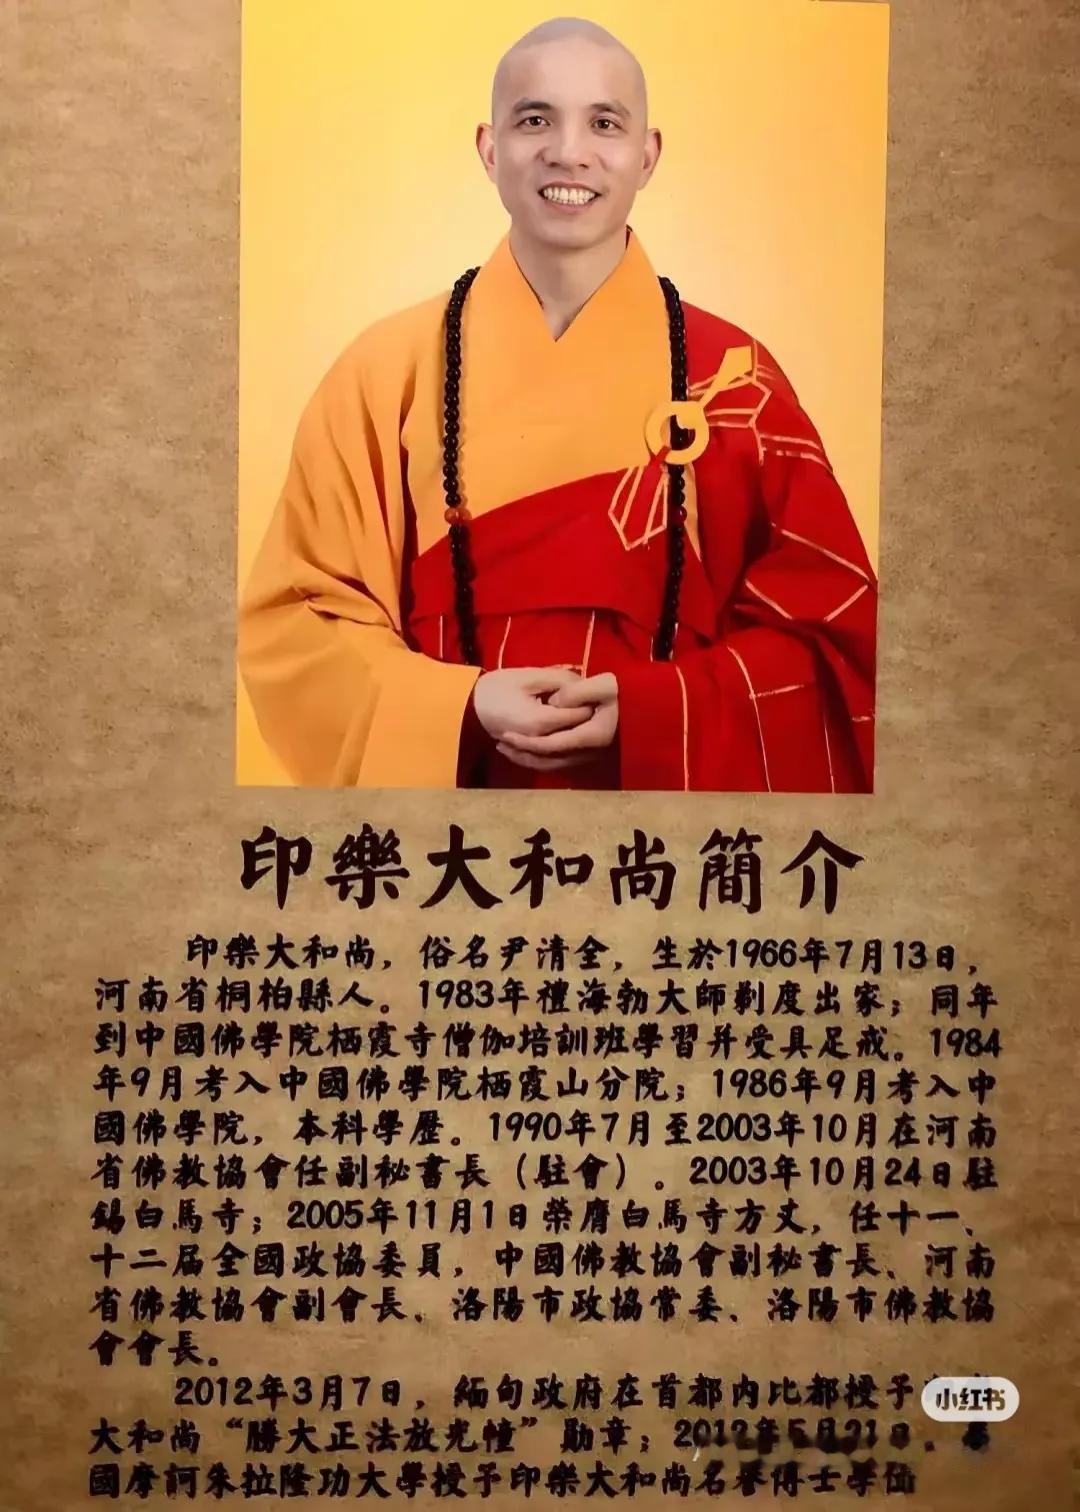 印樂大和尚簡介
印樂大和尚，俗名尹清全，生於1966年7月13日，
河南省桐柏縣人。1983年禮海勃大師剃度出家；同年
到中國佛學院栖霞寺僧伽培訓班學習并受具足戒。1984
年9月考入中國佛學院栖霞山分院；1986年9月考入中
國佛學院，本科學歷。1990年7月至2003年10月在河南
省佛教協會任副秘書長（駐會）。2003年10月24日駐
錫白馬寺；2005年11月1日榮膺白馬寺方丈，任十一、
十二届全國政協委員，中國佛教協會副秘書長、河南
省佛教協會副會長、洛陽市政協常委、洛陽市佛教協
會會長。
2012年3月7日，緬甸政府在首都内比都授予
小红书
大和尚“勝大正法放光幢”勛章；2012年5月21日，
國摩訶朱拉隆功大學授予印樂大和尚名譽博士學位